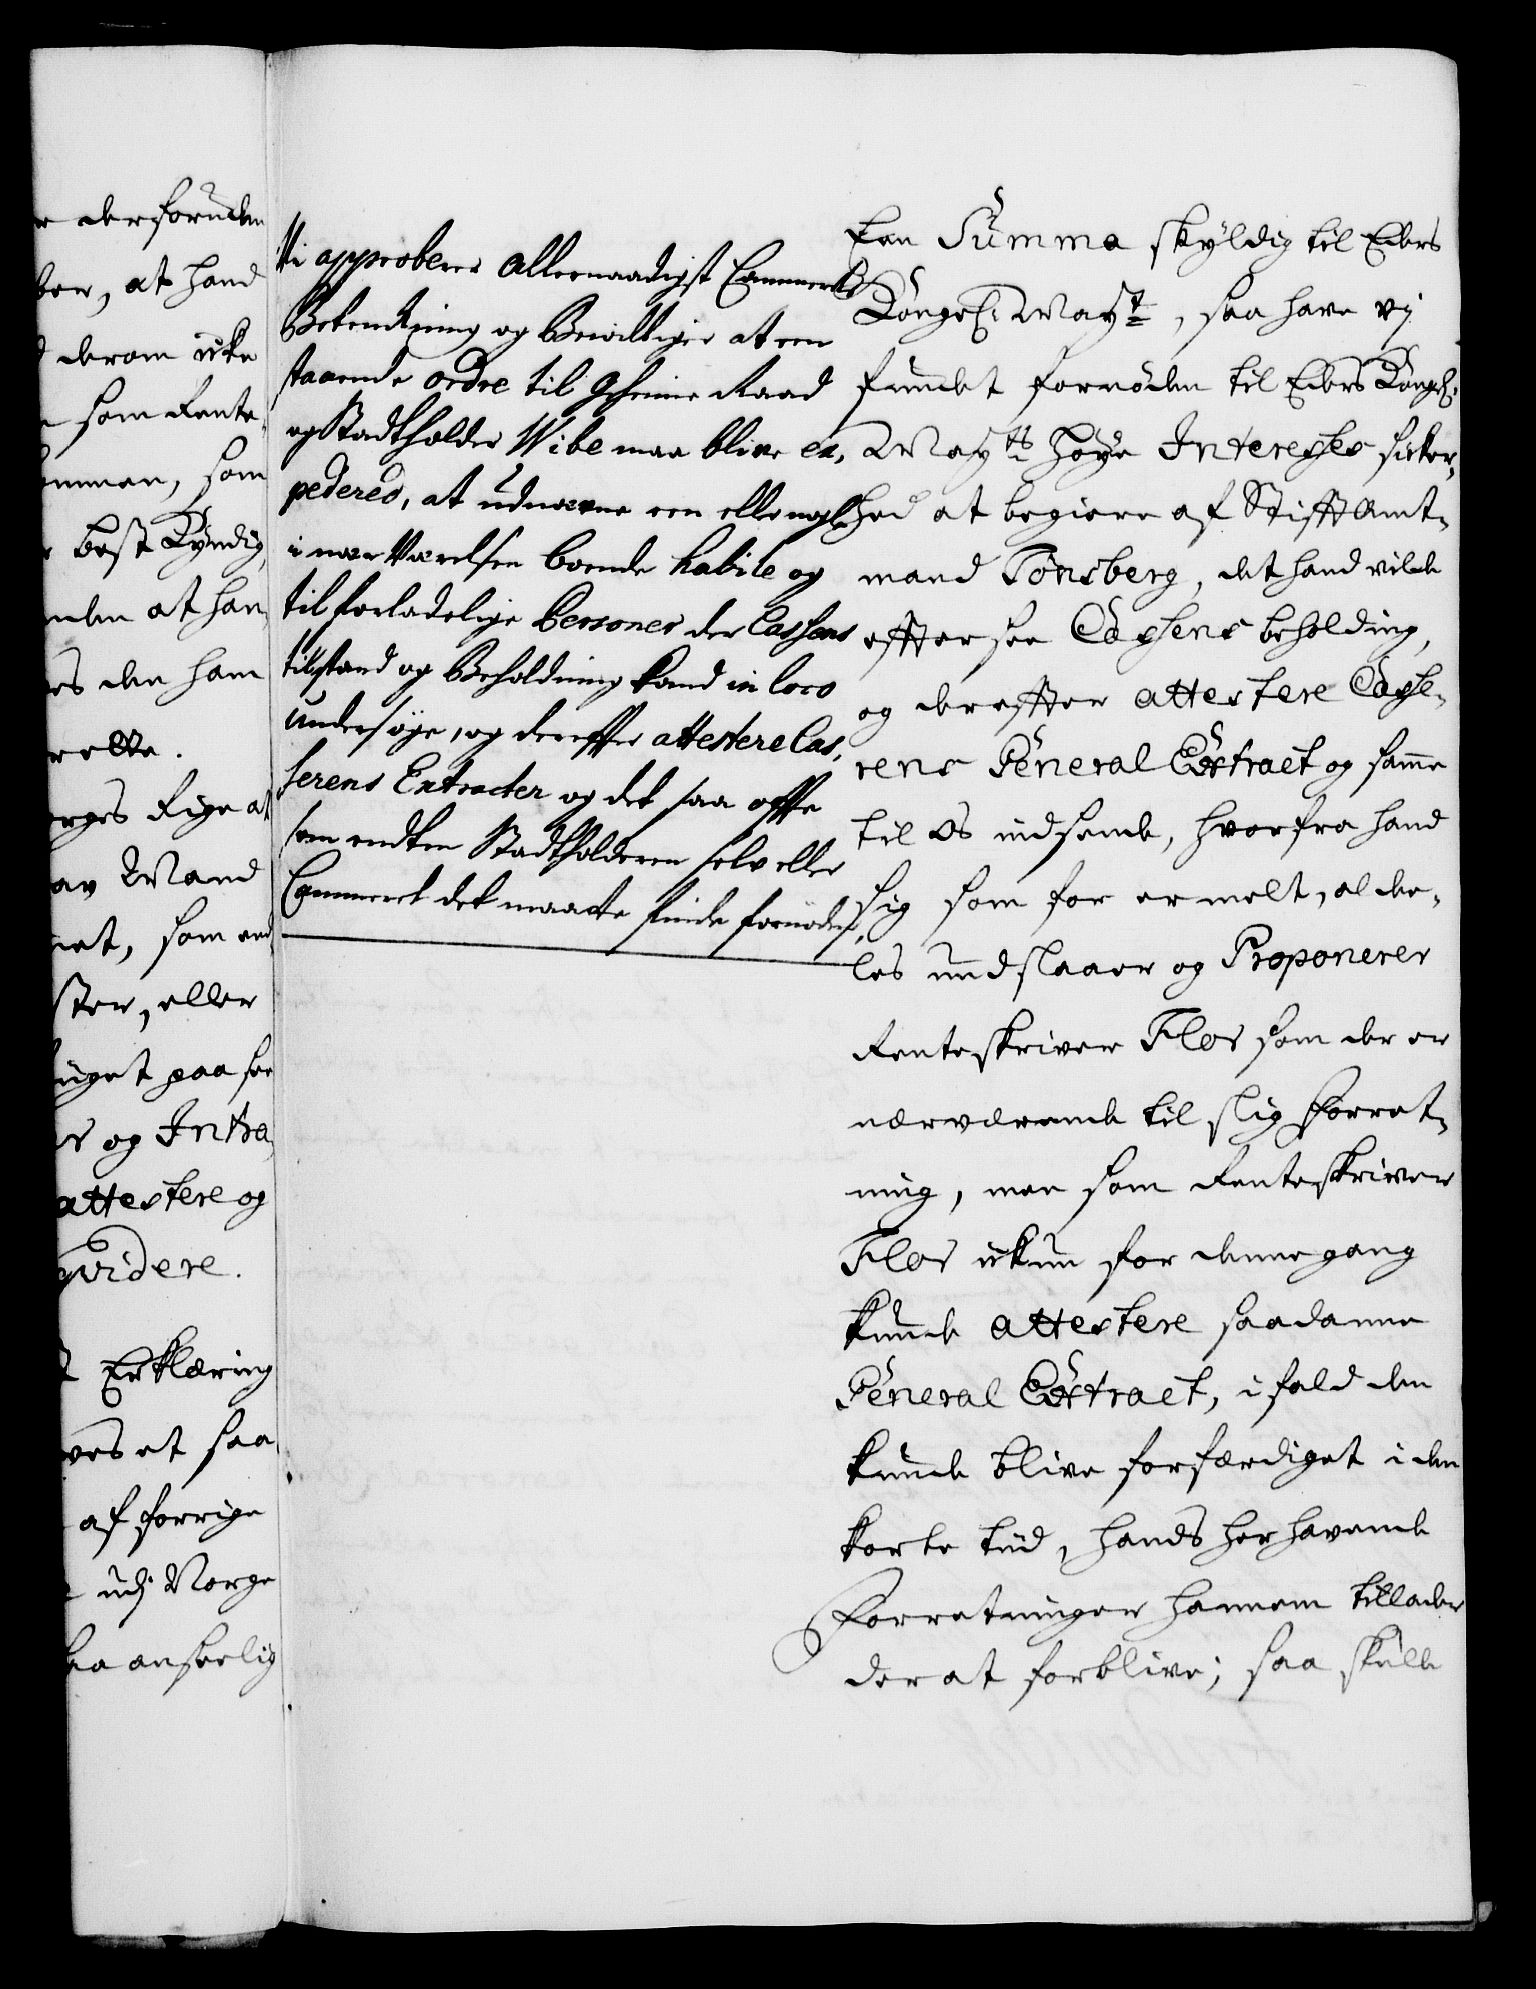 r derforuden
ber, at hand
derom icke
som Rente-
ommen, som
best Kyndig,
nden at han,
es den ham
rette.
orges Rige at
av Mand
et, som end
ster, eller
uget paa see
es og Intra,
attestere og
qvidere.
t Erklæring
ves et saa
af forrige
udj Norge
saa anseelig
Vi approberer Allernaadigst Cammerets
Betenckning og Bevilliger at een
staaende ordre til Geheime Raad
og Stadtholder Wibe maa blive ex,
pederes, at udnævne een eller nogle
i nær Værelsen boende habile og
tilforladelige Personer der Cassens
tilstand og Beholdning kand in loco
undersøge, og derefter attestere Cas,
serens Extracter og det saa offte
som endten Stadtholderen selv eller
Cammeret det maatte finde fornøden,
den Summa skyldig til Eders
Kongel. Mayt, saa have vj
fundet fornøden til Eders Kongel.
Mayts høye Interesses sicker,
hed at begiere af Stifftamt-
mand Tønsberg, det hand vilde
effter see Cassens beholding,
og dereffter attestere Casse-
rens General Extract og samme
til os indsende, hvorfra hand
sig som for er melt, alde,
les undslaaer og Proponerer
Renteskriver Flor som der er
nærværende til slig Forret-
ning, men som Renteskriver
Flor ickun for denne gang
kunde attestere saadanne
General Extract, ifald den
kunde blive forfærdiget i den
korte tiid, hands herhavende
Forretninger hannem tillader
der at forblive; saa skulle